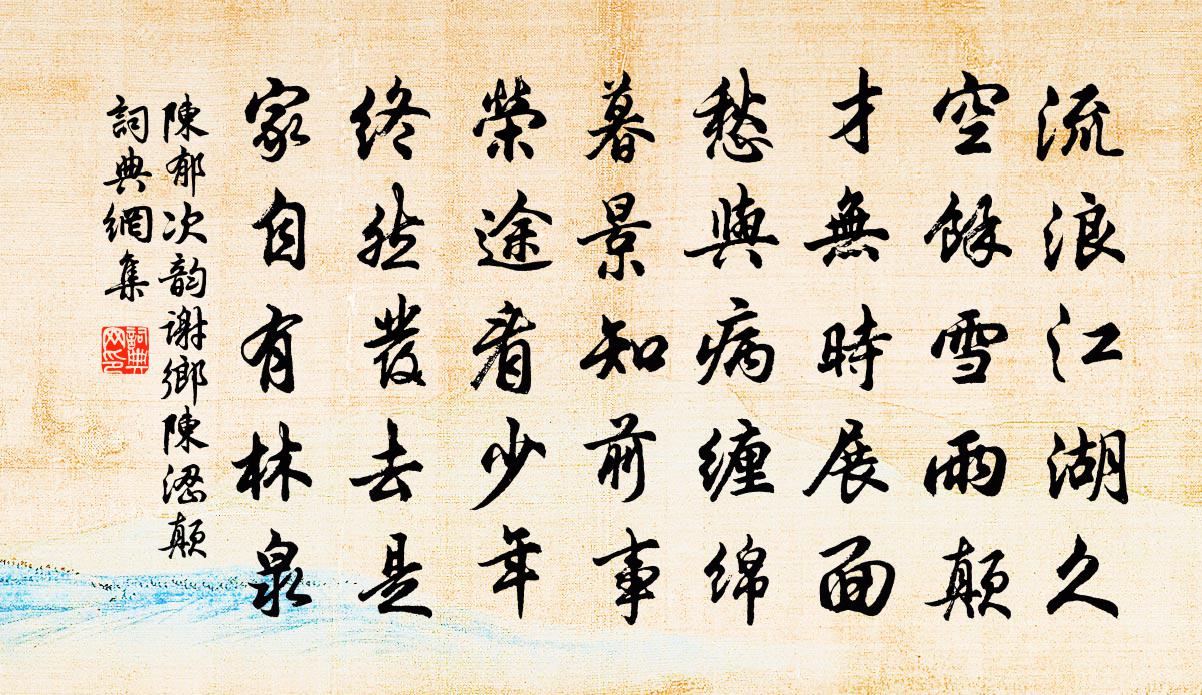 流浪江湖久
空餘雪雨顛
才無時展面
愁與病纏綿
暮景知前事
榮途看少年
終然發去是
家自有林泉
陳郁次韵謝鄉陳濍顛
詞典網集
詞典
网印